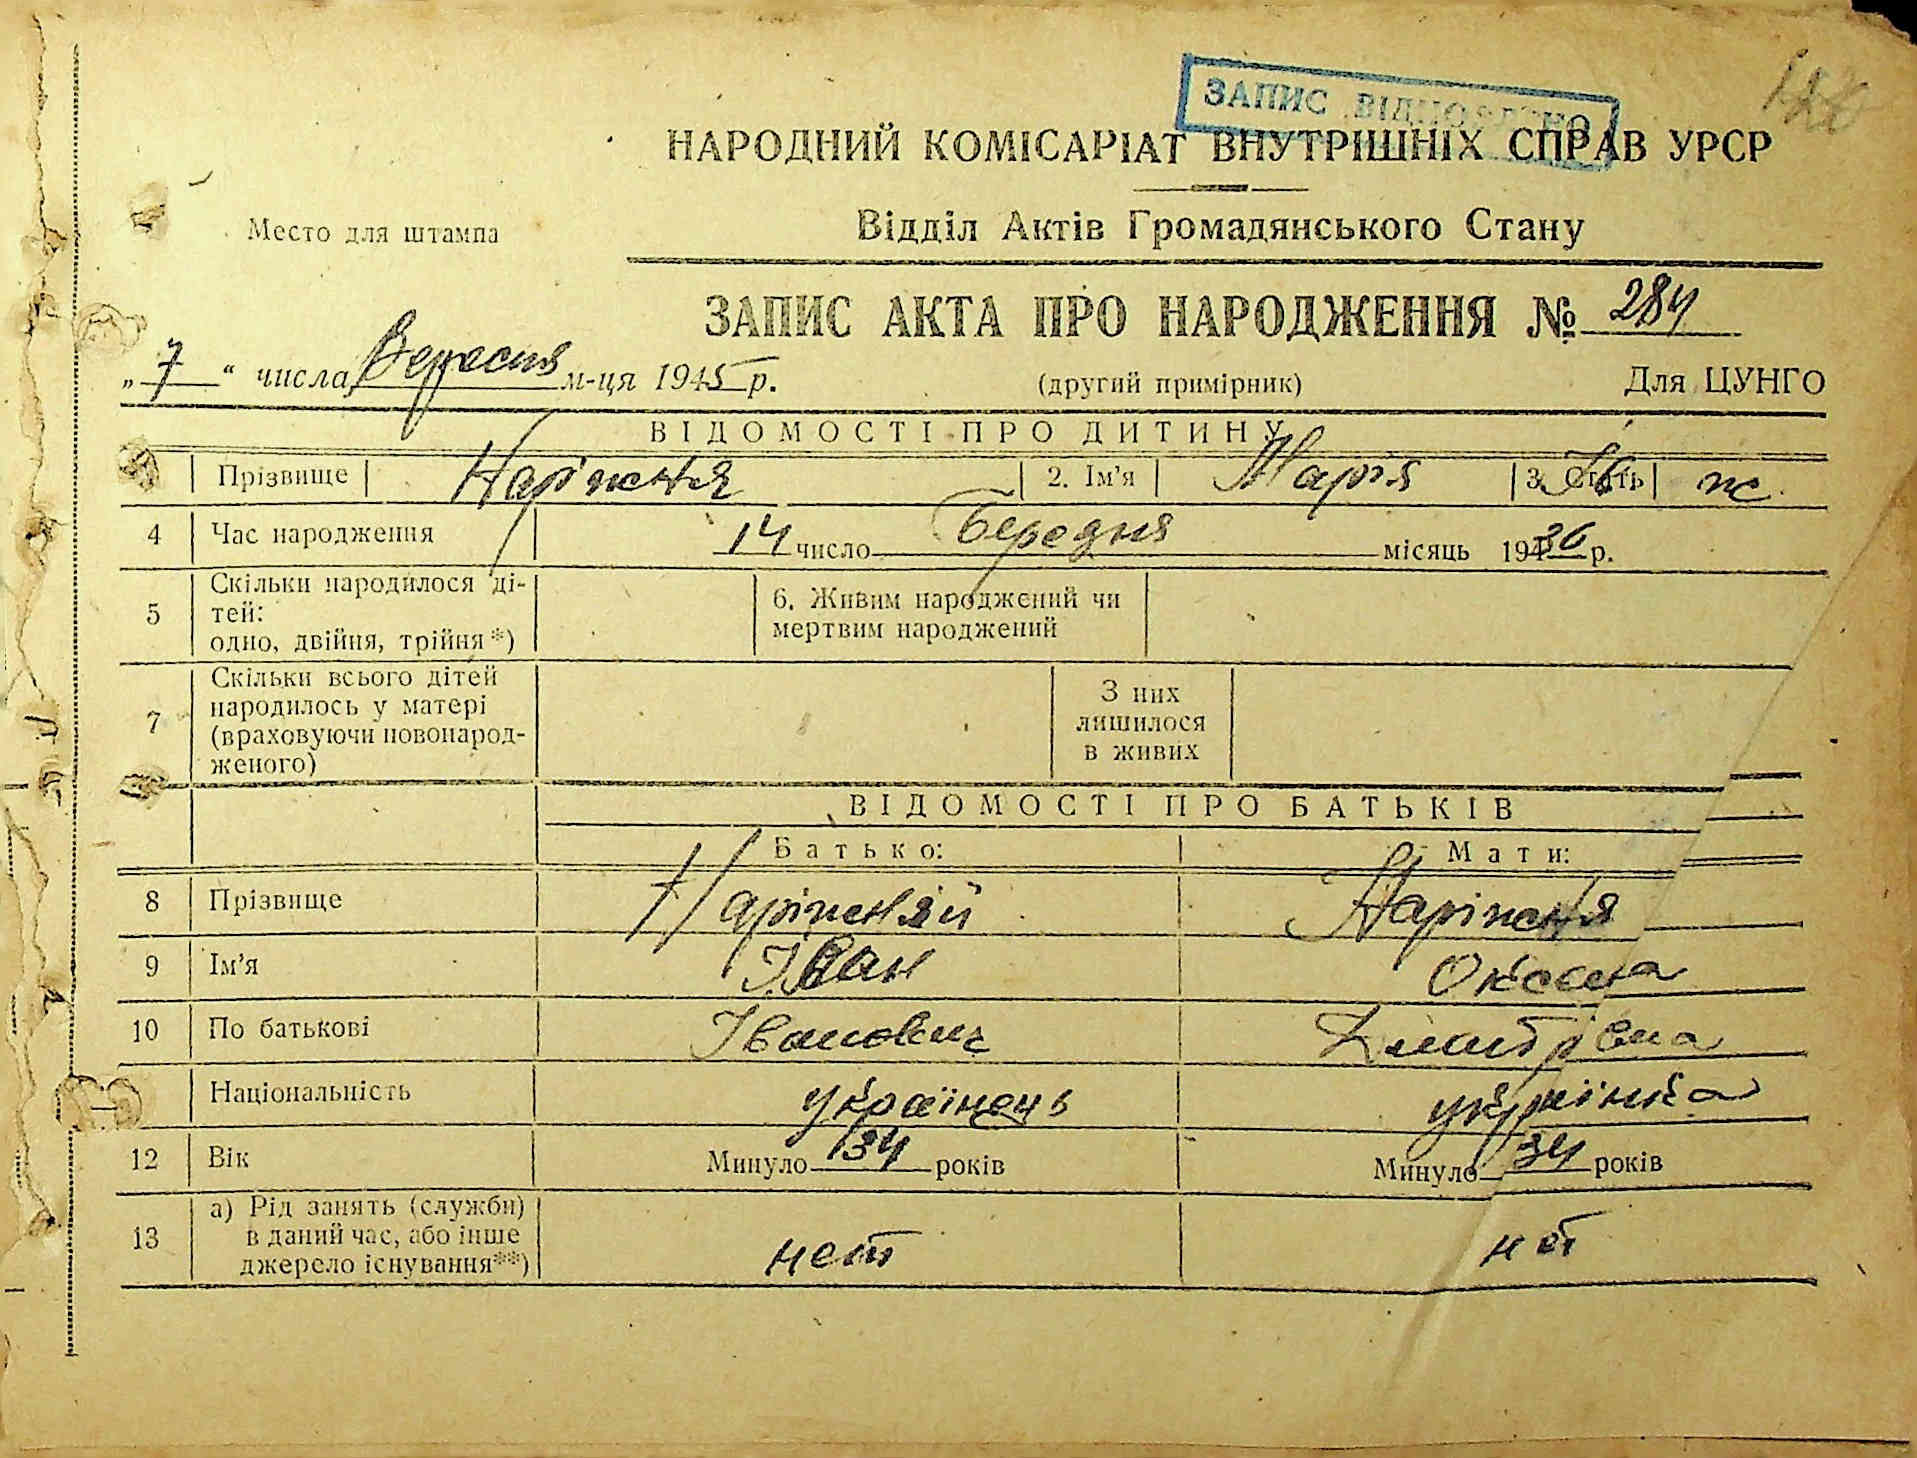 120
ЗАПИС ВІДНОВЛЕНО
НАРОДНИЙ КОМІСАРІАТ ВНУТРІШНІХ СПРАВ УРСР
Место для штампа
Відділ Актів Громадянського Стану
ЗАПИС АКТА ПРО НАРОДЖЕННЯ № 284
„7“ числа Вересня м-ця 1945 р. (другий примірник) Для ЦУНГО
ВІДОМОСТІ ПРО ДИТИНУ
Прізвище Наріжня 2. Ім'я Марія 3. Стать ж
4 Час народження 14 число Березня місяць 1936 р.
5 Скільки народилося ді-
тей:
одно, двійня, трійня*)
6. Живим народжений чи
мертвим народжений
7 Скільки всього дітей
народилось у матері
(враховуючи новонарод-
женого)
З них
лишилося
в живих
ВІДОМОСТІ ПРО БАТЬКІВ
Батько: Мати:
8 Прізвище Наріжний Наріжня
9 Ім'я Іван Оксана
10 По батькові Іванович Дмитрівна
Національність українець українка
12 Вік Минуло 34 років Минуло 34 років
13 а) Рід занять (служби)
в даний час, або інше
джерело існування**)
нет нет